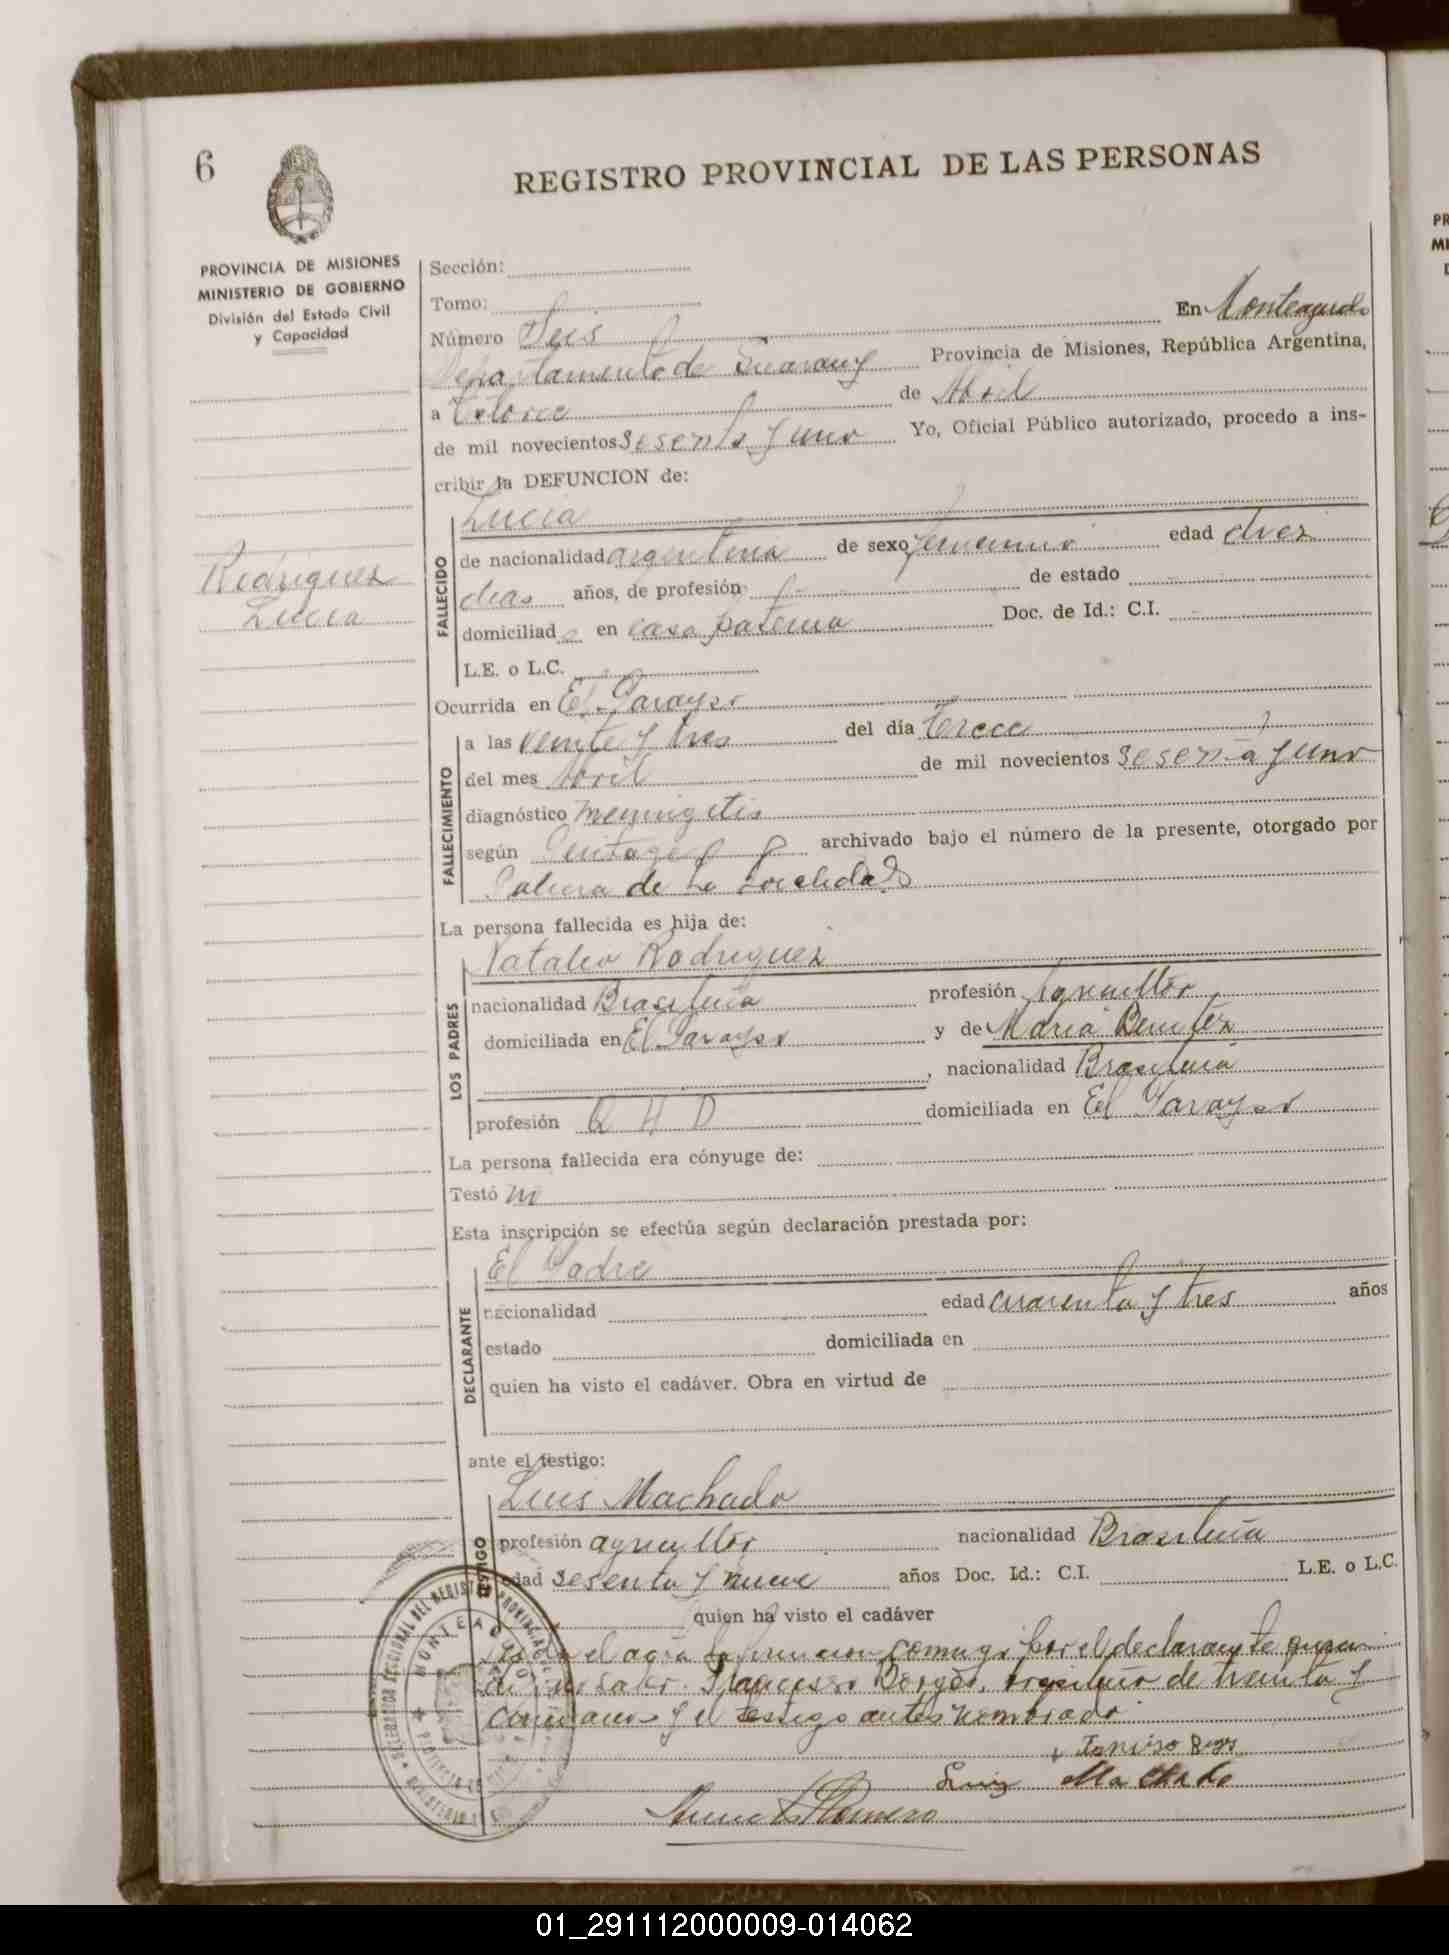 6
REGISTRO PROVINCIAL DE LAS PERSONAS
PROVINCIA DE MISIONES
MINISTERIO DE GOBIERNO
División del Estado Civil
y Capacidad
Rodriguez
Lucia
Sección:
Tomo:
Número Seis En Monteagudo
Departamento de Guarany Provincia de Misiones, República Argentina,
a Catorce de Abril
de mil novecientos Sesenta y uno Yo, Oficial Público autorizado, procedo a ins-
cribir la DEFUNCION de:
FALLECIDO
Lucia
de nacionalidad argentina de sexo femenino edad diez
dias años, de profesión de estado
domiciliad a en casa paterna Doc. de Id.: C.I.
L.E. o L.C.
Ocurrida en El Parayso
FALLECIMIENTO
a las veinte y tres del día Trece
del mes Abril de mil novecientos Sesenta y uno
diagnóstico meningitis
según archivado bajo el número de la presente, otorgado por
de la localidad
La persona fallecida es hija de:
LOS PADRES
Natalio Rodriguez
nacionalidad Brasileña profesión Agricultor
domiciliada en El Parayso y de Maria Benitez
, nacionalidad Brasileña
profesión Q H D domiciliada en El Parayso
La persona fallecida era cónyuge de:
Testó
Esta inscripción se efectúa según declaración prestada por:
DECLARANTE
El Padre
nacionalidad edad cuarenta y tres años
estado domiciliada en
quien ha visto el cadáver. Obra en virtud de
ante el testigo:
TESTIGO
Luis Machado
profesión agricultor nacionalidad Brasileña
edad Sesenta y nueve años Doc. Id.: C.I. L.E. o L.C.
quien ha visto el cadáver
el acta la firman conmigo por el declarante quien
Borges, brasileño de treinta y
años y el testigo antes nombrado
Luiz Machado
Romero
MONTEAGUDO
01_291112000009-014062